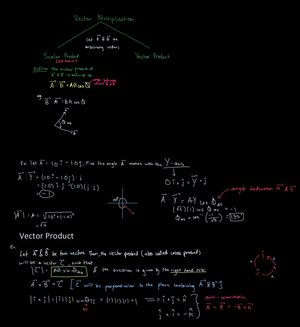 Vector Multiplication
Let A⃗ & B⃗ be
arbitrary vectors
Scalar Product
Vector Product
Define the scalar product of
A⃗ & B⃗ is defined as
A⃗ · B⃗ = AB cos θ
eg B⃗ · A⃗ = BA cos θ
Ex. Let A⃗ = 1.0 i − 1.0 j. Find the angle A⃗ makes with the Y-axis
A⃗ · Y⃗ = (1.0 i − 1.0 j) · j
0 i + j = Y⃗ = j
= (1.0) i · j − (1.0) j · j
= −1
angle between A⃗ & Y⃗
A⃗ · Y⃗ = AY cos θ
(√2)(1) cos θ = −1
|A⃗| = A = √(1.0² + (1.0)²
= √2
= 135°
Vector Product
Let A⃗ & B⃗ be two vectors. Then, the vector product (also called cross product)
will be a vector C⃗, such that
|C⃗| = AB sin θ & the direction is given by the right hand rule.
A⃗ × B⃗ = C⃗ [C⃗ will be perpendicular to the plane containing A⃗ & B⃗]
|i × j| = |i||j| sin θ = (1)(1)(1) = 1
⟹ i × j = k
j × i = −k
A⃗ × B⃗ = −B⃗ × A⃗